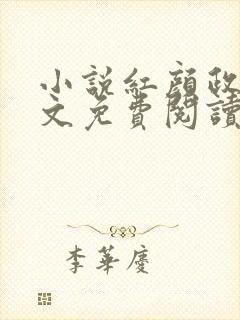 小説紅顔政
文免費閱讀
李華慶